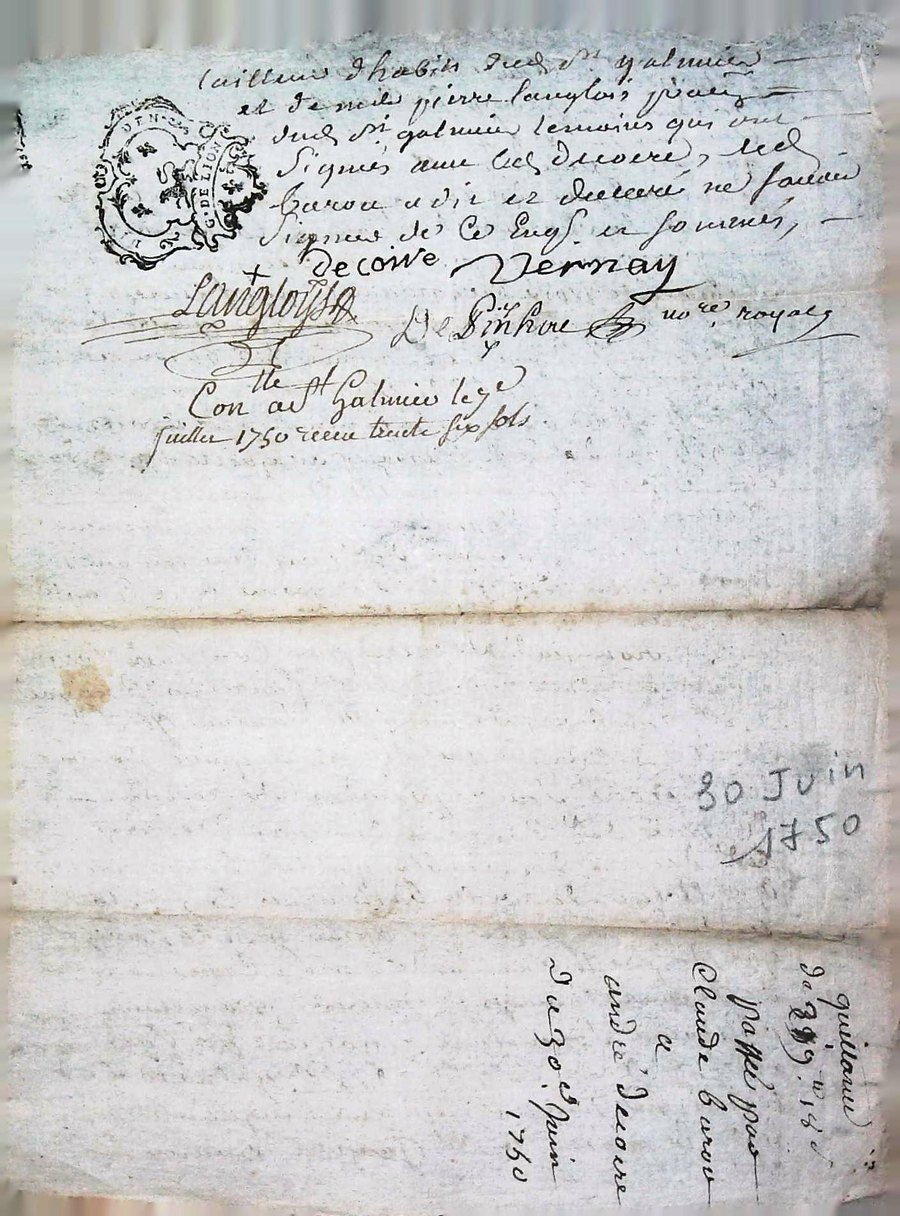 tailleur d'habits dud st galmier
et de me pierre langlois
dud st galmier temoins qui ont
signés avec led decoire, led
barou a dit et declaré ne scavoir
signer de ce enq. et sommés,
G. DE LION
decoire Vernay
Langloys
De nore royal
Conlle a st Galmier le 7e
juillet 1750 reçu trente six sols
30 Juin
1750
quittance
de
passée par
Claude barou
a
andré decoire
Du 30e Juin
1750